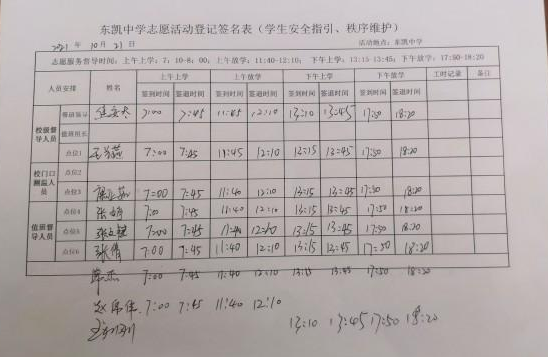 东凯中学志愿活动登记签名表（学生安全指引、秩序维护）
2021 年 10 月 21 日 活动地点：东凯中学
志愿服务督导时间：上午上学：7：10-8：00；上午放学：11:40-12:10；下午上学：13:15-13:45；下午放学：17:50-18:20
人员安排 姓名 上午上学 上午放学 下午上学 下午放学 工时记录 备注
签到时间 签退时间 签到时间 签退时间 签到时间 签退时间 签到时间 签退时间
校级督导人员 7:00 7:45 11:45 12:10 13:10 13:45 17:50 18:20
值班组长
点位1 7:00 7:45 11:45 12:10 13:15 13:45 17:50 18:20
校门口测温人员 点位2
点位3 7:00 7:45 11:40 12:10 13:15 13:45 17:50 18:20
值班督导人员 点位4 张婷 7:00 7:45 11:40 12:10 13:15 13:45 17:50 18:20
点位5 7:00 7:45 11:40 12:10 13:15 13:45 17:50 18:20
点位6 张倩 7:00 7:45 11:40 12:10 13:15 13:45 17:50 18:20
陈杰 7:00 7:45 11:40 12:10 13:15 13:45 17:50 18:20
赵伟佳 7:00 7:45 11:40 12:10
13:10 13:45 17:50 18:20